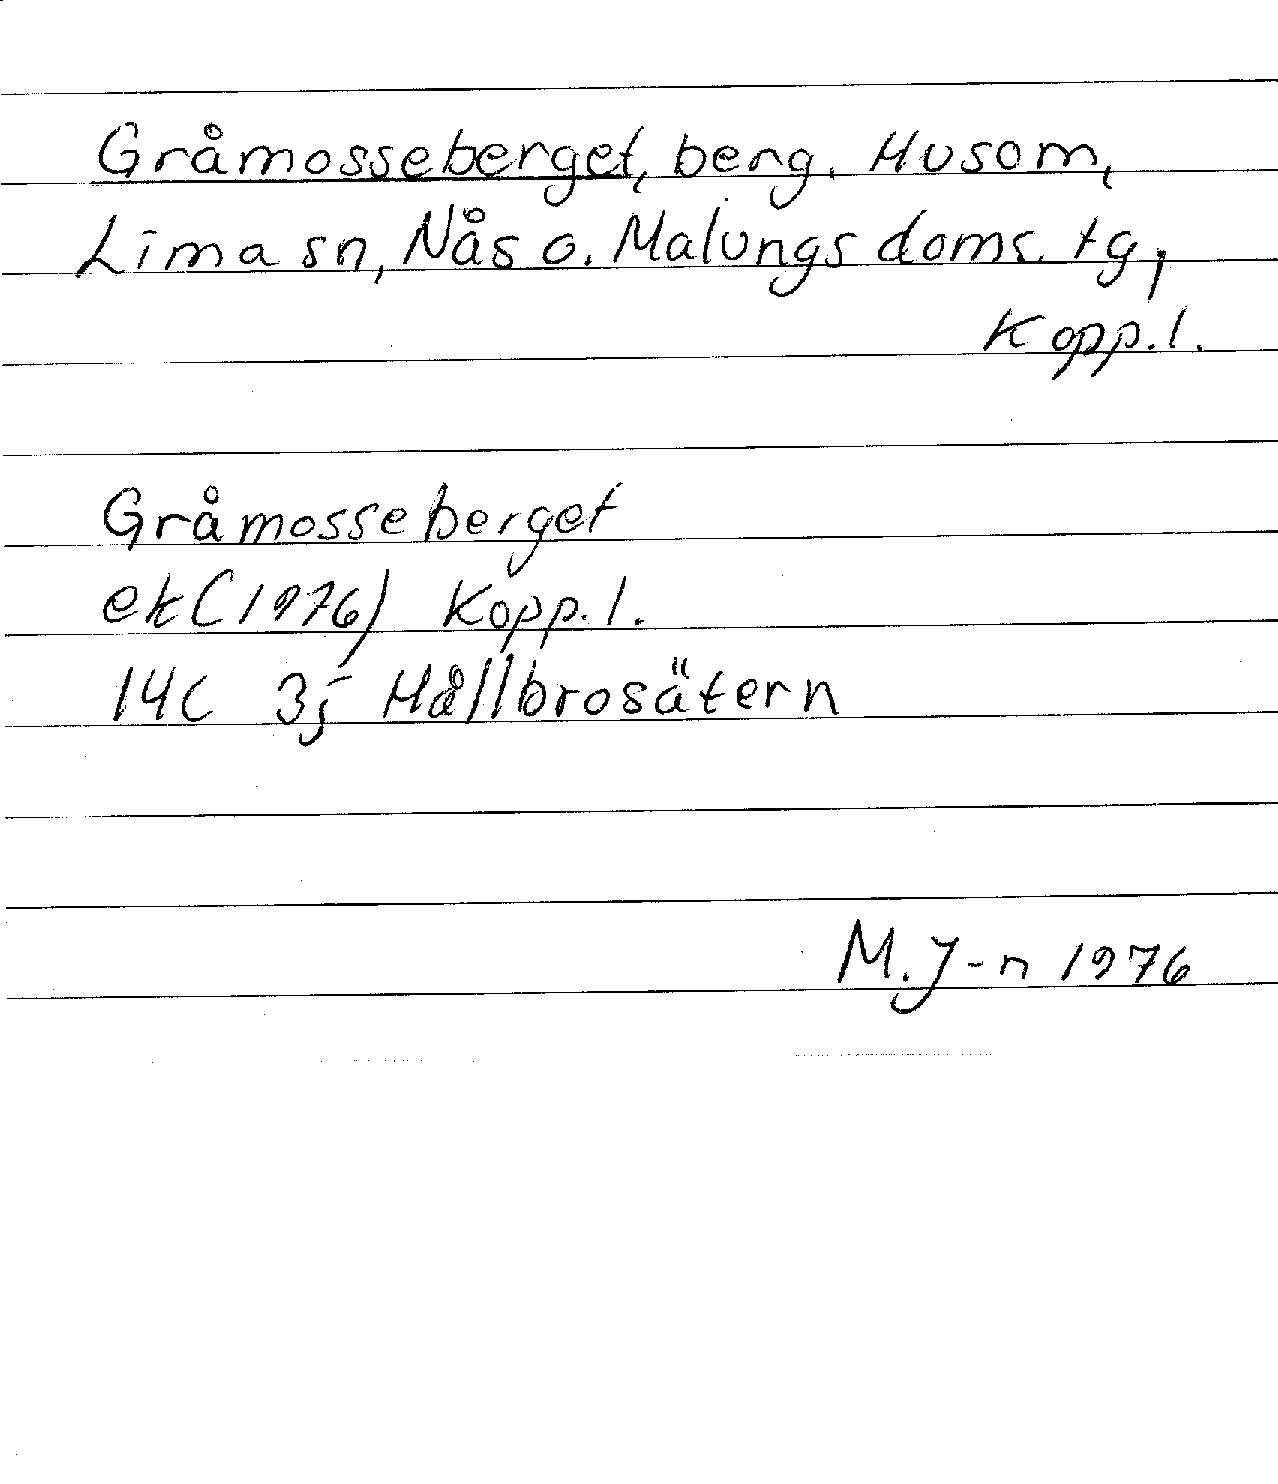 Gråmosseberget, berg. Husom,
Lima sn, Nås o. Malungs doms. tg,
Kopp.l.
Gråmosseberget
ek (1976) Kopp.l.
14C 3j Hållbrosätern
M.J-n 1976